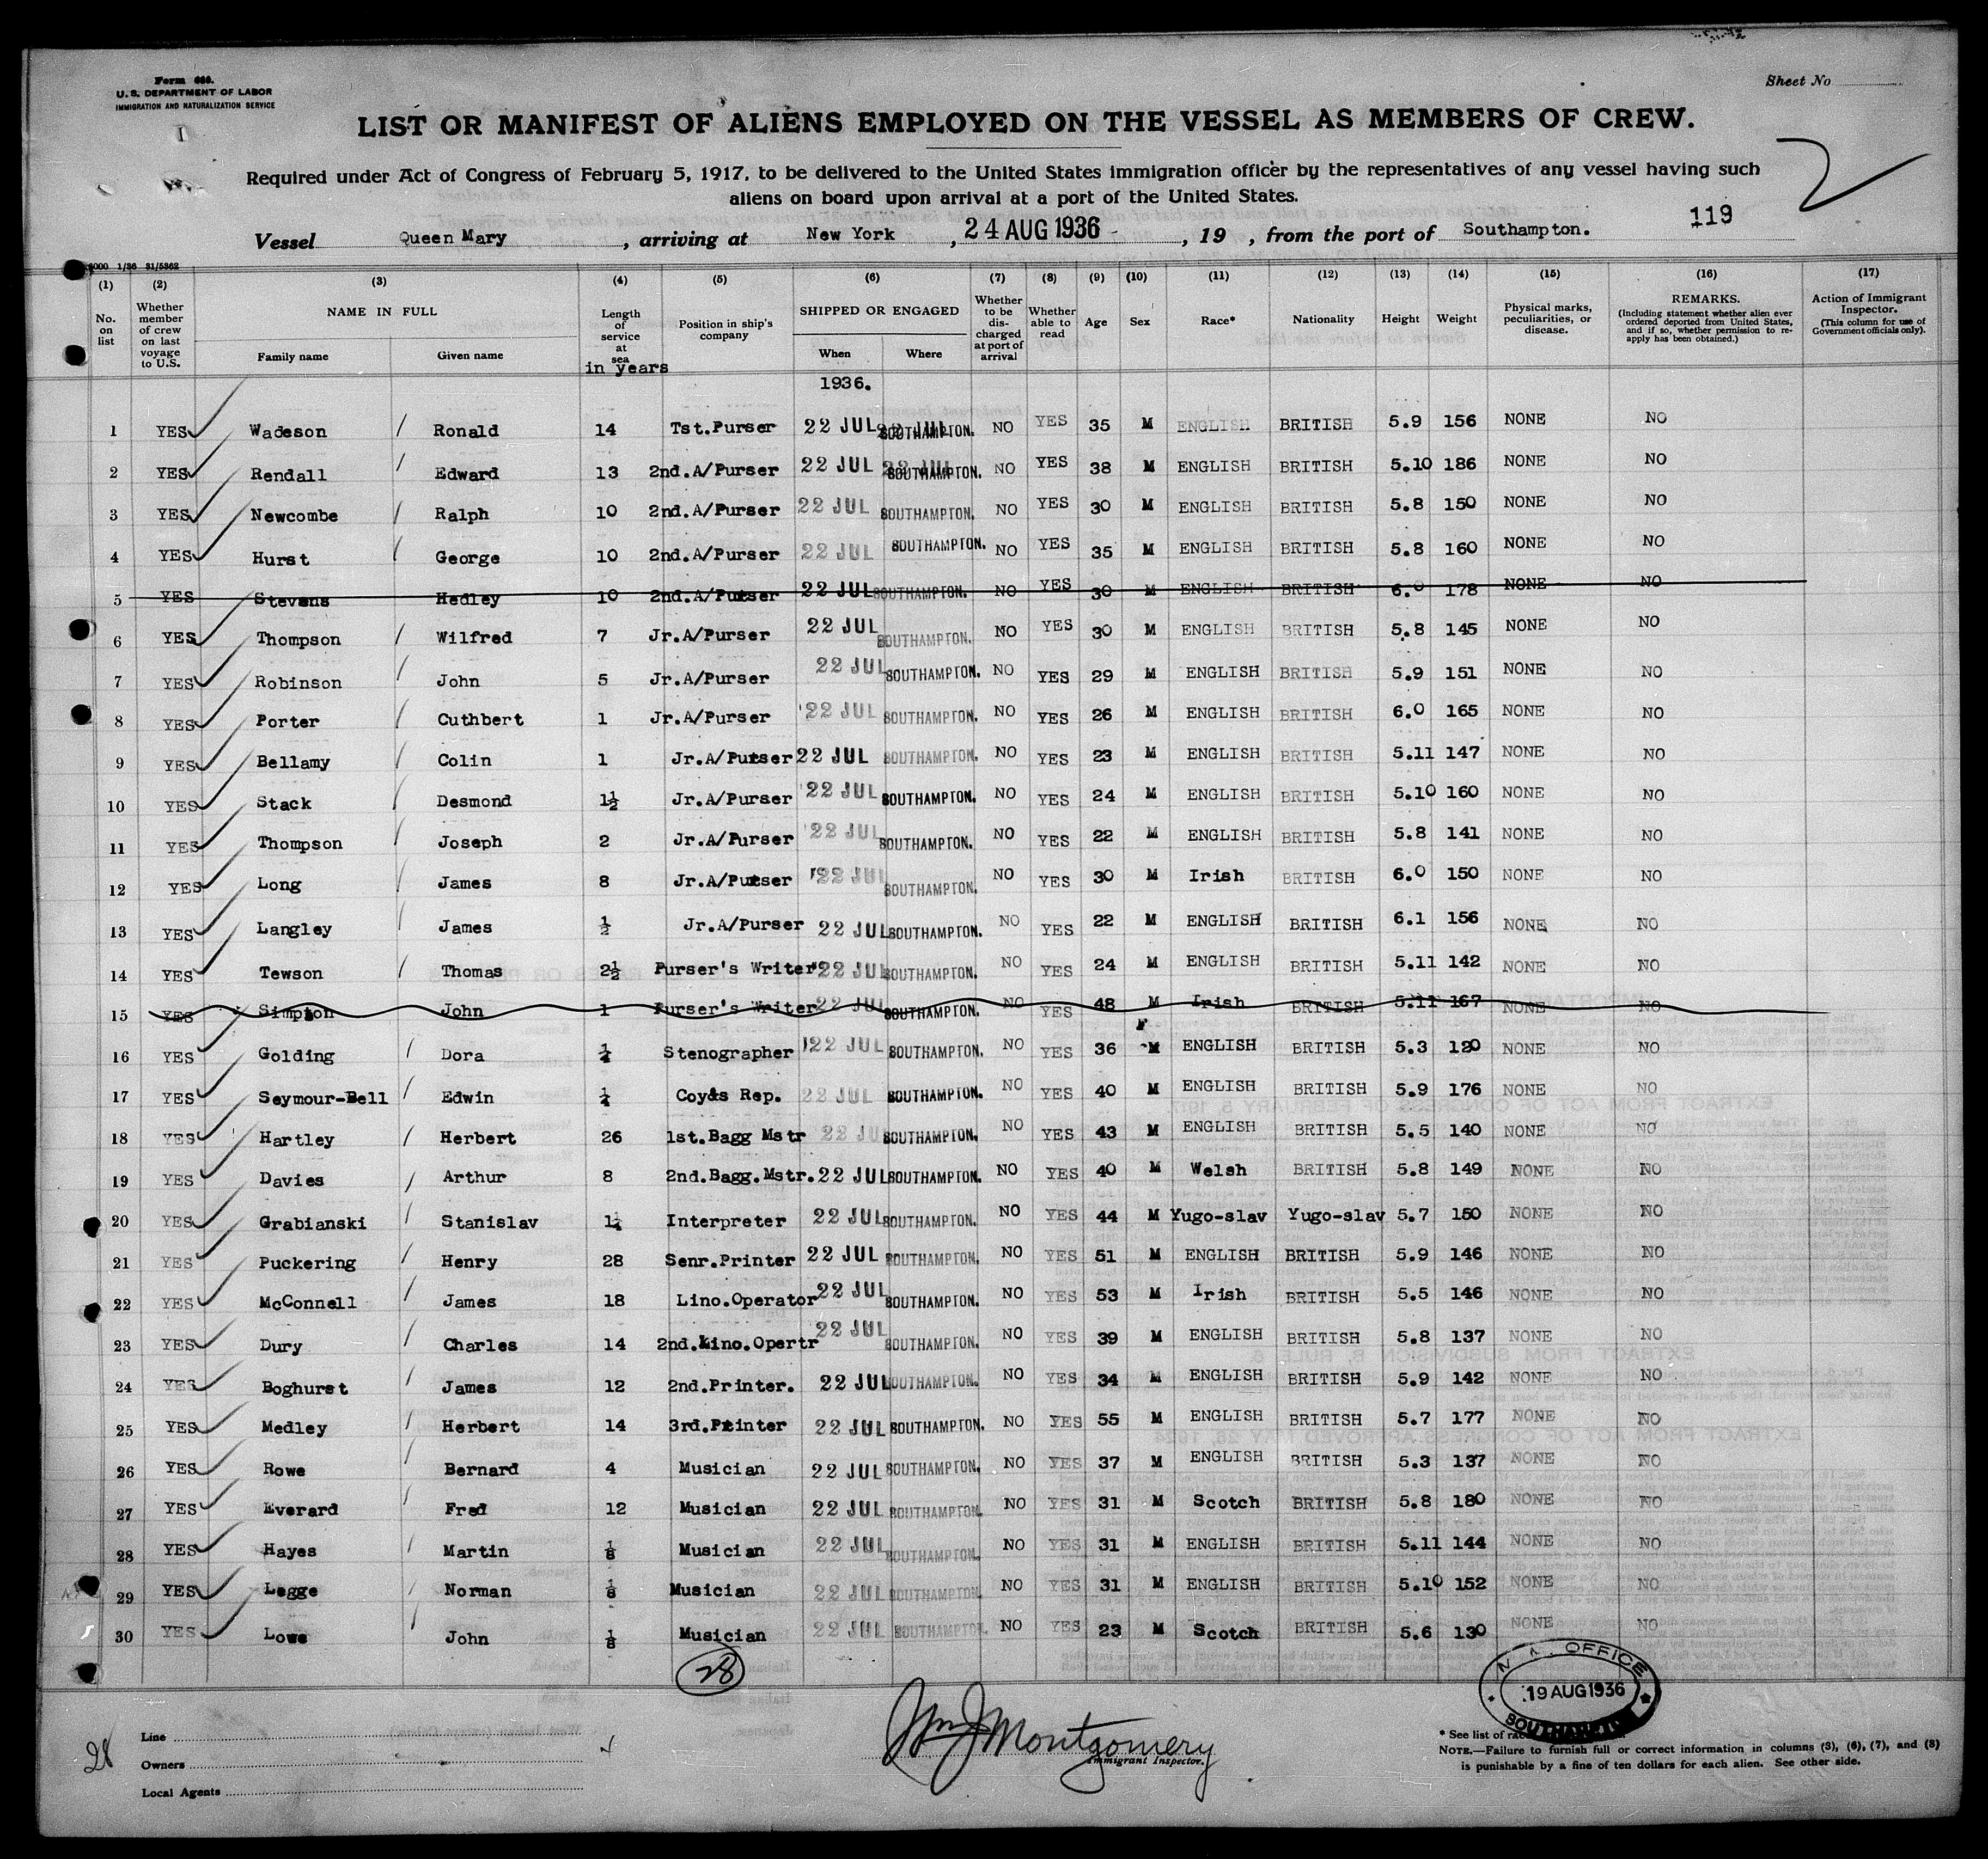 Form 680.
U. S. DEPARTMENT OF LABOR
IMMIGRATION AND NATURALIZATION SERVICE
Sheet No
LIST OR MANIFEST OF ALIENS EMPLOYED ON THE VESSEL AS MEMBERS OF CREW.
Required under Act of Congress of February 5, 1917, to be delivered to the United States immigration officer by the representatives of any vessel having such
aliens on board upon arrival at a port of the United States.
119
Vessel Queen Mary, arriving at New York, 24 AUG 1936, 19 , from the port of Southampton.
(1) (2) (3) (4) (5) (6) (7) (8) (9) (10) (11) (12) (13) (14) (15) (16) (17)
No. on list
Whether member of crew on last voyage to U.S.
NAME IN FULL
Family name
Given name
Length of service at sea
in years
Position in ship's company
SHIPPED OR ENGAGED
When
Where
Whether to be discharged at port of arrival
Whether able to read
Age
Sex
Race*
Nationality
Height
Weight
Physical marks, peculiarities, or disease.
REMARKS.
(Including statement whether alien ever ordered deported from United States, and if so, whether permission to re-apply has been obtained.)
Action of Immigrant Inspector.
(This column for use of Government officials only).
1936.
1 YES Wadeson Ronald 14 Tst.Purser 22 JUL SOUTHAMPTON. NO YES 35 M ENGLISH BRITISH 5.9 156 NONE NO
2 YES Rendall Edward 13 2nd.A/Purser 22 JUL 22 JUL SOUTHAMPTON. NO YES 38 M ENGLISH BRITISH 5.10 186 NONE NO
3 YES Newcombe Ralph 10 2nd.A/Purser 22 JUL SOUTHAMPTON. NO YES 30 M ENGLISH BRITISH 5.8 150 NONE NO
4 YES Hurst George 10 2nd.A/Purser 22 JUL SOUTHAMPTON. NO YES 35 M ENGLISH BRITISH 5.8 160 NONE NO
5 YES Stevens Hedley 10 2nd.A/Purser 22 JUL SOUTHAMPTON. NO YES 30 M ENGLISH BRITISH 6.0 178 NONE NO
6 YES Thompson Wilfred 7 Jr.A/Purser 22 JUL SOUTHAMPTON. NO YES 30 M ENGLISH BRITISH 5.8 145 NONE NO
7 YES Robinson John 5 Jr.A/Purser 22 JUL SOUTHAMPTON. NO YES 29 M ENGLISH BRITISH 5.9 151 NONE NO
8 YES Porter Cuthbert 1 Jr.A/Purser 22 JUL SOUTHAMPTON. NO YES 26 M ENGLISH BRITISH 6.0 165 NONE NO
9 YES Bellamy Colin 1 Jr.A/Purser 22 JUL SOUTHAMPTON. NO YES 23 M ENGLISH BRITISH 5.11 147 NONE NO
10 YES Stack Desmond 1½ Jr.A/Purser 22 JUL SOUTHAMPTON. NO YES 24 M ENGLISH BRITISH 5.10 160 NONE NO
11 YES Thompson Joseph 2 Jr.A/Purser 22 JUL SOUTHAMPTON. NO YES 22 M ENGLISH BRITISH 5.8 141 NONE NO
12 YES Long James 8 Jr.A/Purser 22 JUL SOUTHAMPTON. NO YES 30 M Irish BRITISH 6.0 150 NONE NO
13 YES Langley James ½ Jr.A/Purser 22 JUL SOUTHAMPTON. NO YES 22 M ENGLISH BRITISH 6.1 156 NONE NO
14 YES Tewson Thomas 2½ Purser's Writer 22 JUL SOUTHAMPTON. NO YES 24 M ENGLISH BRITISH 5.11 142 NONE NO
15 YES Simpton John 1 Purser's Writer 22 JUL SOUTHAMPTON. NO YES 48 M Irish BRITISH 5.11 167 NONE NO
16 YES Golding Dora ¼ Stenographer 22 JUL SOUTHAMPTON. NO YES 36 F M ENGLISH BRITISH 5.3 120 NONE NO
17 YES Seymour-Bell Edwin ¼ Coy&s Rep. 22 JUL SOUTHAMPTON. NO YES 40 M ENGLISH BRITISH 5.9 176 NONE NO
18 YES Hartley Herbert 26 1st.Bagg Mstr 22 JUL SOUTHAMPTON. NO YES 43 M ENGLISH BRITISH 5.5 140 NONE NO
19 YES Davies Arthur 8 2nd.Bagg.Mstr. 22 JUL SOUTHAMPTON. NO YES 40 M Welsh BRITISH 5.8 149 NONE NO
20 YES Grabianski Stanislav 1¼ Interpreter 22 JUL SOUTHAMPTON. NO YES 44 M Yugo-slav Yugo-slav 5.7 150 NONE NO
21 YES Puckering Henry 28 Senr.Printer 22 JUL SOUTHAMPTON. NO YES 51 M ENGLISH BRITISH 5.9 146 NONE NO
22 YES McConnell James 18 Lino.Operator 22 JUL SOUTHAMPTON. NO YES 53 M Irish BRITISH 5.5 146 NONE NO
23 YES Dury Charles 14 2nd.Lino.Opertr 22 JUL SOUTHAMPTON. NO YES 39 M ENGLISH BRITISH 5.8 137 NONE NO
24 YES Boghurst James 12 2nd.Printer. 22 JUL SOUTHAMPTON. NO YES 34 M ENGLISH BRITISH 5.9 142 NONE NO
25 YES Medley Herbert 14 3rd.Printer 22 JUL SOUTHAMPTON. NO YES 55 M ENGLISH BRITISH 5.7 177 NONE NO
26 YES Rowe Bernard 4 Musician 22 JUL SOUTHAMPTON. NO YES 37 M ENGLISH BRITISH 5.3 137 NONE NO
27 YES Everard Fred 12 Musician 22 JUL SOUTHAMPTON. NO YES 31 M Scotch BRITISH 5.8 180 NONE NO
28 YES Hayes Martin ⅛ Musician 22 JUL SOUTHAMPTON. NO YES 31 M ENGLISH BRITISH 5.11 144 NONE NO
29 YES Legge Norman ⅛ Musician 22 JUL SOUTHAMPTON. NO YES 31 M ENGLISH BRITISH 5.10 152 NONE NO
30 YES Lowe John ⅛ Musician 22 JUL SOUTHAMPTON. NO YES 23 M Scotch BRITISH 5.6 130 NONE NO
28
OFFICE
19 AUG 1936
SOUTHAMPTON
Wm J Montgomery
Immigrant Inspector.
28
Line
Owners
Local Agents
* See list of
NOTE.—Failure to furnish full or correct information in columns (3), (6), (7), and (8)
is punishable by a fine of ten dollars for each alien. See other side.